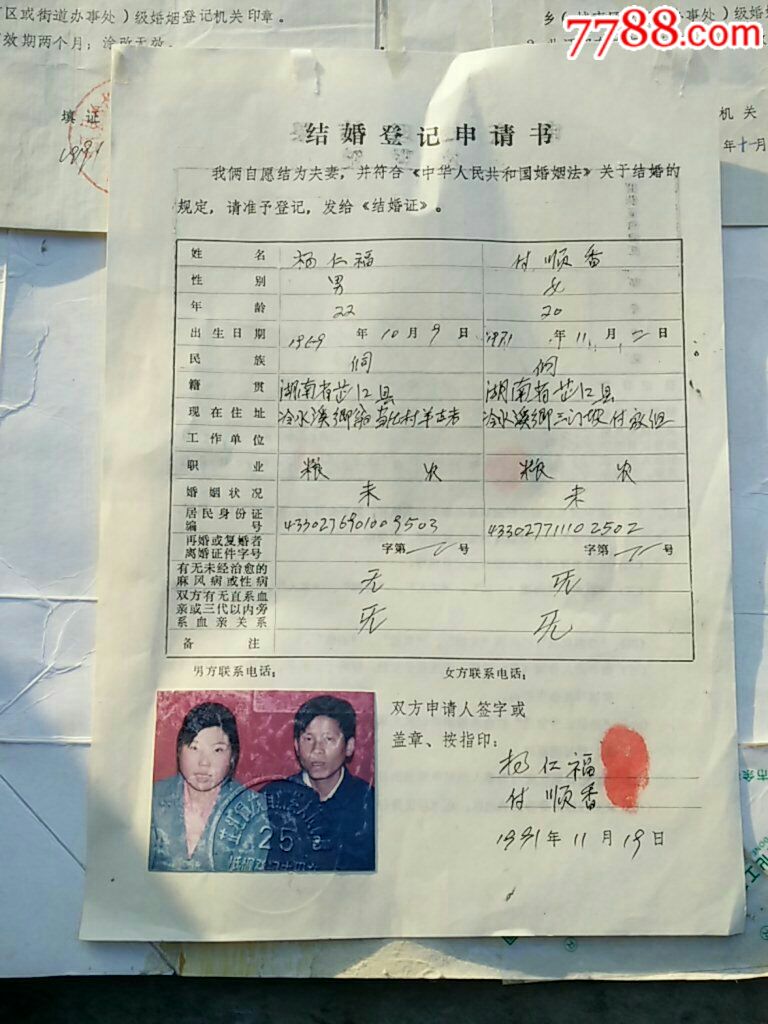 区或街道办事处）级婚姻登记机关印章。
效期两个月；涂改无效。
7788.com
填证
1991
机关
年十一月
结婚登记申请书
我俩自愿结为夫妻，并符合《中华人民共和国婚姻法》关于结婚的
规定，请准予登记，发给《结婚证》。
姓名 杨仁福 付顺香
性别 男 女
年龄 22 20
出生日期 1969年10月9日 1971年11月二日
民族 侗 侗
籍贯 湖南省芷江县 湖南省芷江县
现在住址 冷水溪乡 村 冷水溪乡三门坡付家组
工作单位
职业 粮农 粮农
婚姻状况 未 未
居民身份证
编号 433027691009503 433027711102502
再婚或复婚者
离婚证件字号 字第 号 字第 号
有无未经治愈的
麻风病或性病 无 无
双方有无直系血
亲或三代以内旁
系血亲关系 无 无
备注
男方联系电话： 女方联系电话：
双方申请人签字或
盖章、按指印：
杨仁福
付顺香
1991年11月19日
25